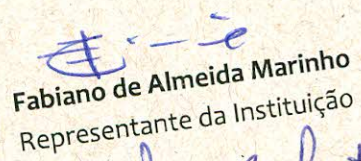 Fabiano de Almeida Marinho
Representante da Instituição